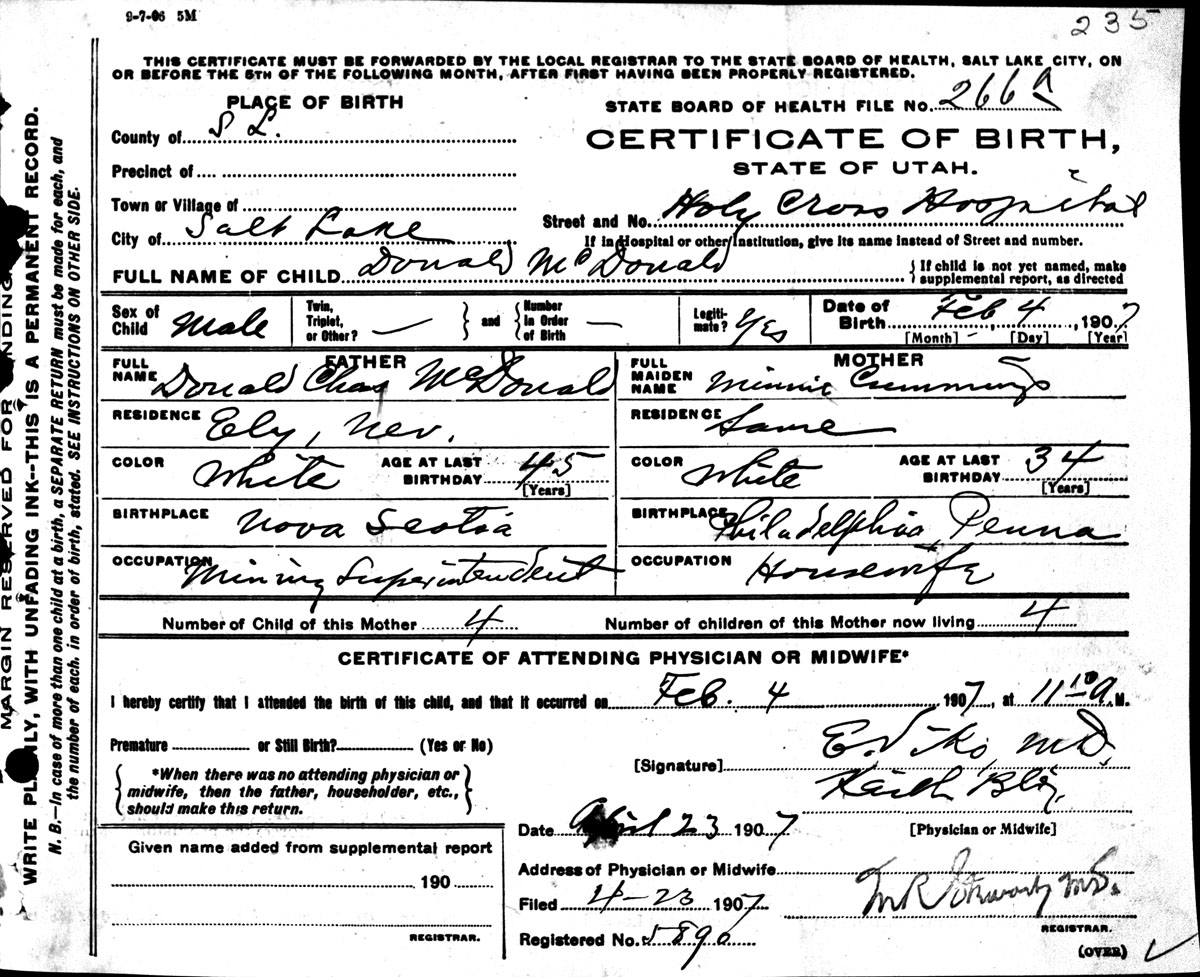 9-7-06 5M
235
THIS CERTIFICATE MUST BE FORWARDED BY THE LOCAL REGISTRAR TO THE STATE BOARD OF HEALTH, SALT LAKE CITY, ON
OR BEFORE THE 5TH OF THE FOLLOWING MONTH, AFTER FIRST HAVING BEEN PROPERLY REGISTERED.
PLACE OF BIRTH
STATE BOARD OF HEALTH FILE No. 266a
County of S L.
CERTIFICATE OF BIRTH,
STATE OF UTAH.
Precinct of
Town or Village of
Street and No. Holy Cross Hospital
City of Salt Lake
If in Hospital or other Institution, give its name instead of Street and number.
FULL NAME OF CHILD Donald McDonald
If child is not yet named, make
supplemental report, as directed
Sex of Child Male
Twin, Triplet, or Other? —
and
Number in Order of Birth —
Legiti-mate? Yes
Date of Birth Feb 4, 1907
[Month] [Day] [Year]
FATHER
FULL NAME Donald Chas McDonald
RESIDENCE Ely, Nev.
COLOR White AGE AT LAST BIRTHDAY 45
[Years]
BIRTHPLACE Nova Scotia
OCCUPATION Mining Superintendent
MOTHER
FULL MAIDEN NAME Minnie Cummings
RESIDENCE Same
COLOR White AGE AT LAST BIRTHDAY 34
[Years]
BIRTHPLACE Philadelphia, Penna
OCCUPATION Housewife
Number of Child of this Mother 4 Number of children of this Mother now living 4
CERTIFICATE OF ATTENDING PHYSICIAN OR MIDWIFE*
I hereby certify that I attended the birth of this child, and that it occurred on Feb. 4 1907, at 11 10 a. M.
Premature or Still Birth? (Yes or No)
*When there was no attending physician or
midwife, then the father, householder, etc.,
should make this return.
[Signature] M.D.
Keith Bldg.
[Physician or Midwife]
Date April 23 1907
Given name added from supplemental report
190
REGISTRAR.
Address of Physician or Midwife
Filed 4-23 1907
REGISTRAR.
Registered No. 5890
(OVER)
MARGIN RESERVED FOR BINDING
WRITE PLAINLY, WITH UNFADING INK--THIS IS A PERMANENT RECORD.
N. B.—In case of more than one child at a birth, a SEPARATE RETURN must be made for each, and
the number of each, in order of birth, stated. SEE INSTRUCTIONS ON OTHER SIDE.